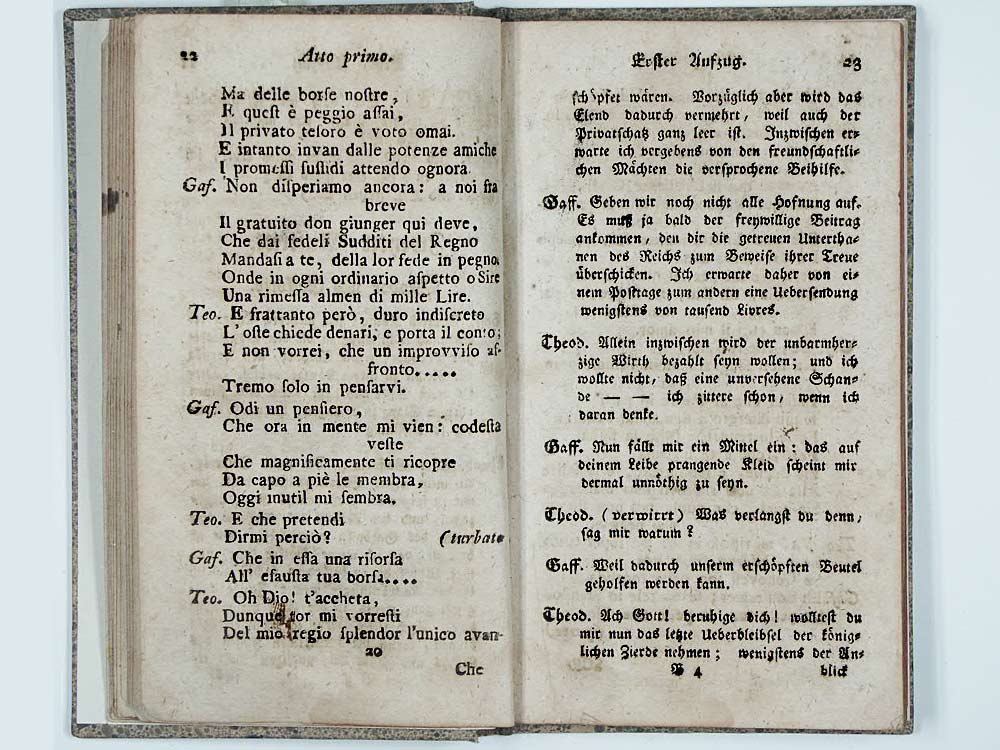 22 Atto primo.
Ma delle borſe noſtre,
E queſt è peggio aſſai,
Il privato teſoro è voto omai.
E intanto invan dalle potenze amiche
I promeſſi ſuſſidi attendo ognora.
Gaf. Non diſperiamo ancora: a noi fra
breve
Il gratuito don giunger qui deve,
Che dai fedeli Sudditi del Regno
Mandaſi a te, della lor fede in pegno,
Onde in ogni ordinario aſpetto o Sire
Una rimeſſa almen di mille Lire.
Teo. E frattanto però, duro indiſcreto
L'oſte chiede denari, e porta il conto;
E non vorrei, che un improvviſo af-
fronto.....
Tremo ſolo in penſarvi.
Gaf. Odi un penſiero,
Che ora in mente mi vien: codeſta
veſte
Che magnificamente ti ricopre
Da capo a piè le membra,
Oggi inutil mi ſembra.
Teo. E che pretendi
Dirmi perciò? (turbato
Gaf. Che in eſſa una riſorſa
All' eſauſta tua borſa....
Teo. Oh Dio! t'accheta,
Dunque tor mi vorreſti
Del mio regio ſplendor l'unico avan-
zo
Che
Erſter Aufzug. 23
ſchöpfet wären. Vorzüglich aber wird das
Elend dadurch vermehrt, weil auch der
Privatſchatz ganz leer iſt. Inzwiſchen er-
warte ich vergebens von den freundſchaftli-
chen Mächten die verſprochene Beihilfe.
Gaff. Geben wir noch nicht alle Hofnung auf.
Es muß ja bald der freywillige Beitrag
ankommen, den dir die getreuen Untertha-
nen des Reichs zum Beweiſe ihrer Treue
überſchicken. Ich erwarte daher von ei-
nem Poſttage zum andern eine Ueberſendung
wenigſtens von tauſend Livres.
Theod. Allein inzwiſchen wird der unbarmher-
zige Wirth bezahlt ſeyn wollen; und ich
wollte nicht, daß eine unverſehene Schan-
de — — ich zittere ſchon, wenn ich
daran denke.
Gaff. Nun fällt mir ein Mittel ein: das auf
deinem Leibe prangende Kleid ſcheint mir
dermal unnöthig zu ſeyn.
Theod. (verwirrt) Was verlangſt du denn,
ſag mir warum?
Gaff. Weil dadurch unſerm erſchöpften Beutel
geholfen werden kann.
Theod. Ach Gott! beruhige dich! wollteſt du
mir nun das letzte Ueberbleibſel der könig-
lichen Zierde nehmen; wenigſtens der An-
B 4 blick